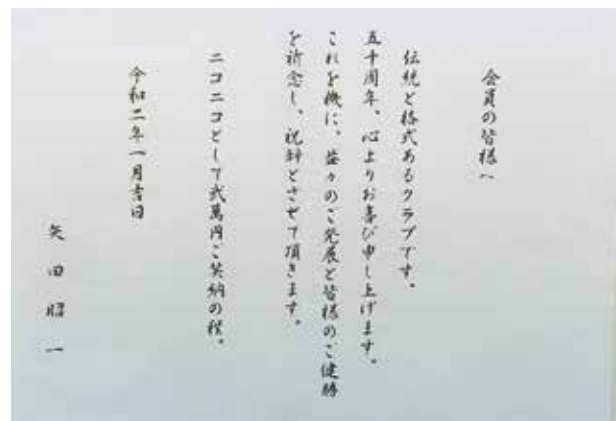 会員の皆様へ
伝統と格式あるクラブです。
五十周年、心よりお喜び申し上げます。
これを機に、益々のご発展と皆様のご健勝
を祈念し、祝辞とさせて頂きます。
ニコニコとして弐萬円ご笑納の程。
令和二年一月吉日
矢田昭一